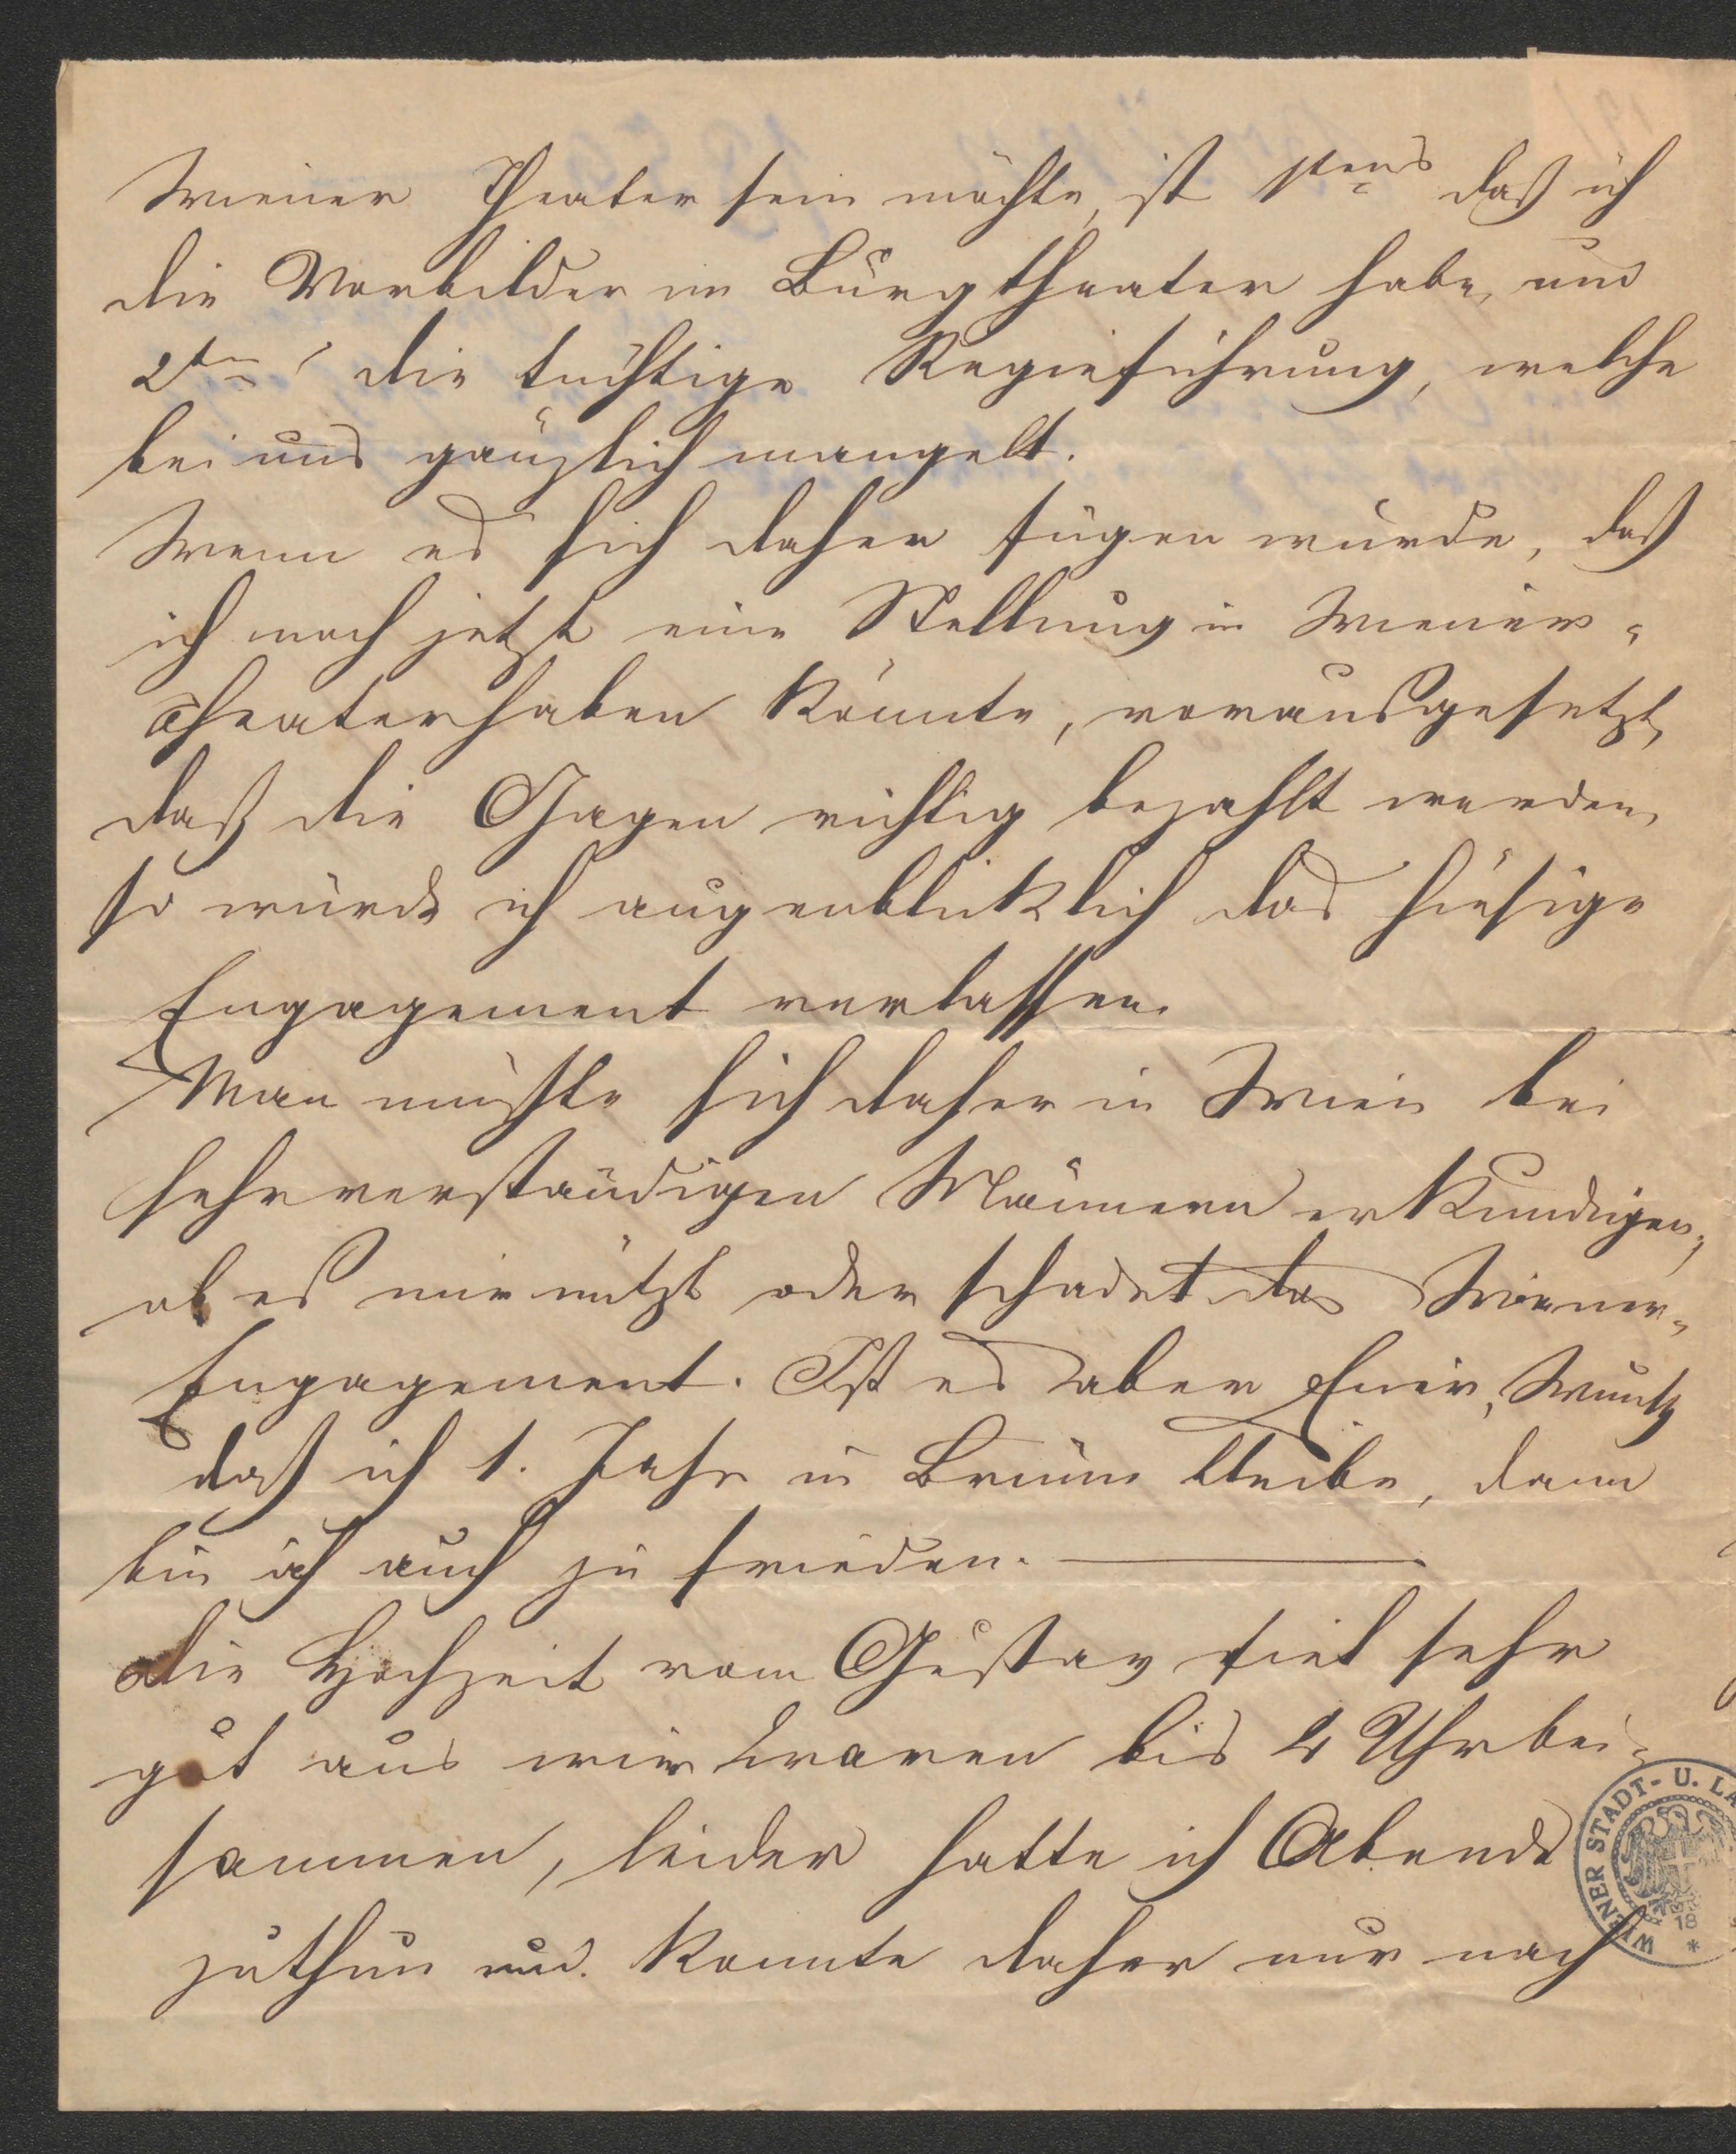 Wiener Theater sein möchte, ist 1stens daß ich
die Vorbilder im Burgtheater habe, und
2tens die tüchtige Regieführung, welche
bei uns gänzlich mangelt.
Wenn es sich daher fügen würde, daß
ich noch jetzt eine Stellung in Wiener-
Theater haben könnte, vorausgesetzt,
daß die Gagen richtig bezahlt werden,
so würde ich augenblicklich das hiesige
Engagement verlassen.
Man müßte sich daher in Wien bei
sehr verständigen Männern erkundigen,
ob es mir nützt oder schadet das Wiener-
Engagement. Ist es aber Euer Wunsch
daß ich 1. Jahr in Brünn bleibe, dann
bin ich auch zu frieden.
Die Hochzeit vom Gustav fiel sehr
gut aus wir waren bis 4 Uhr bei-
sammen, leider hatte ich Abends
zuthun und. konnte daher nur nach
WIENER STADT- U. LA
18